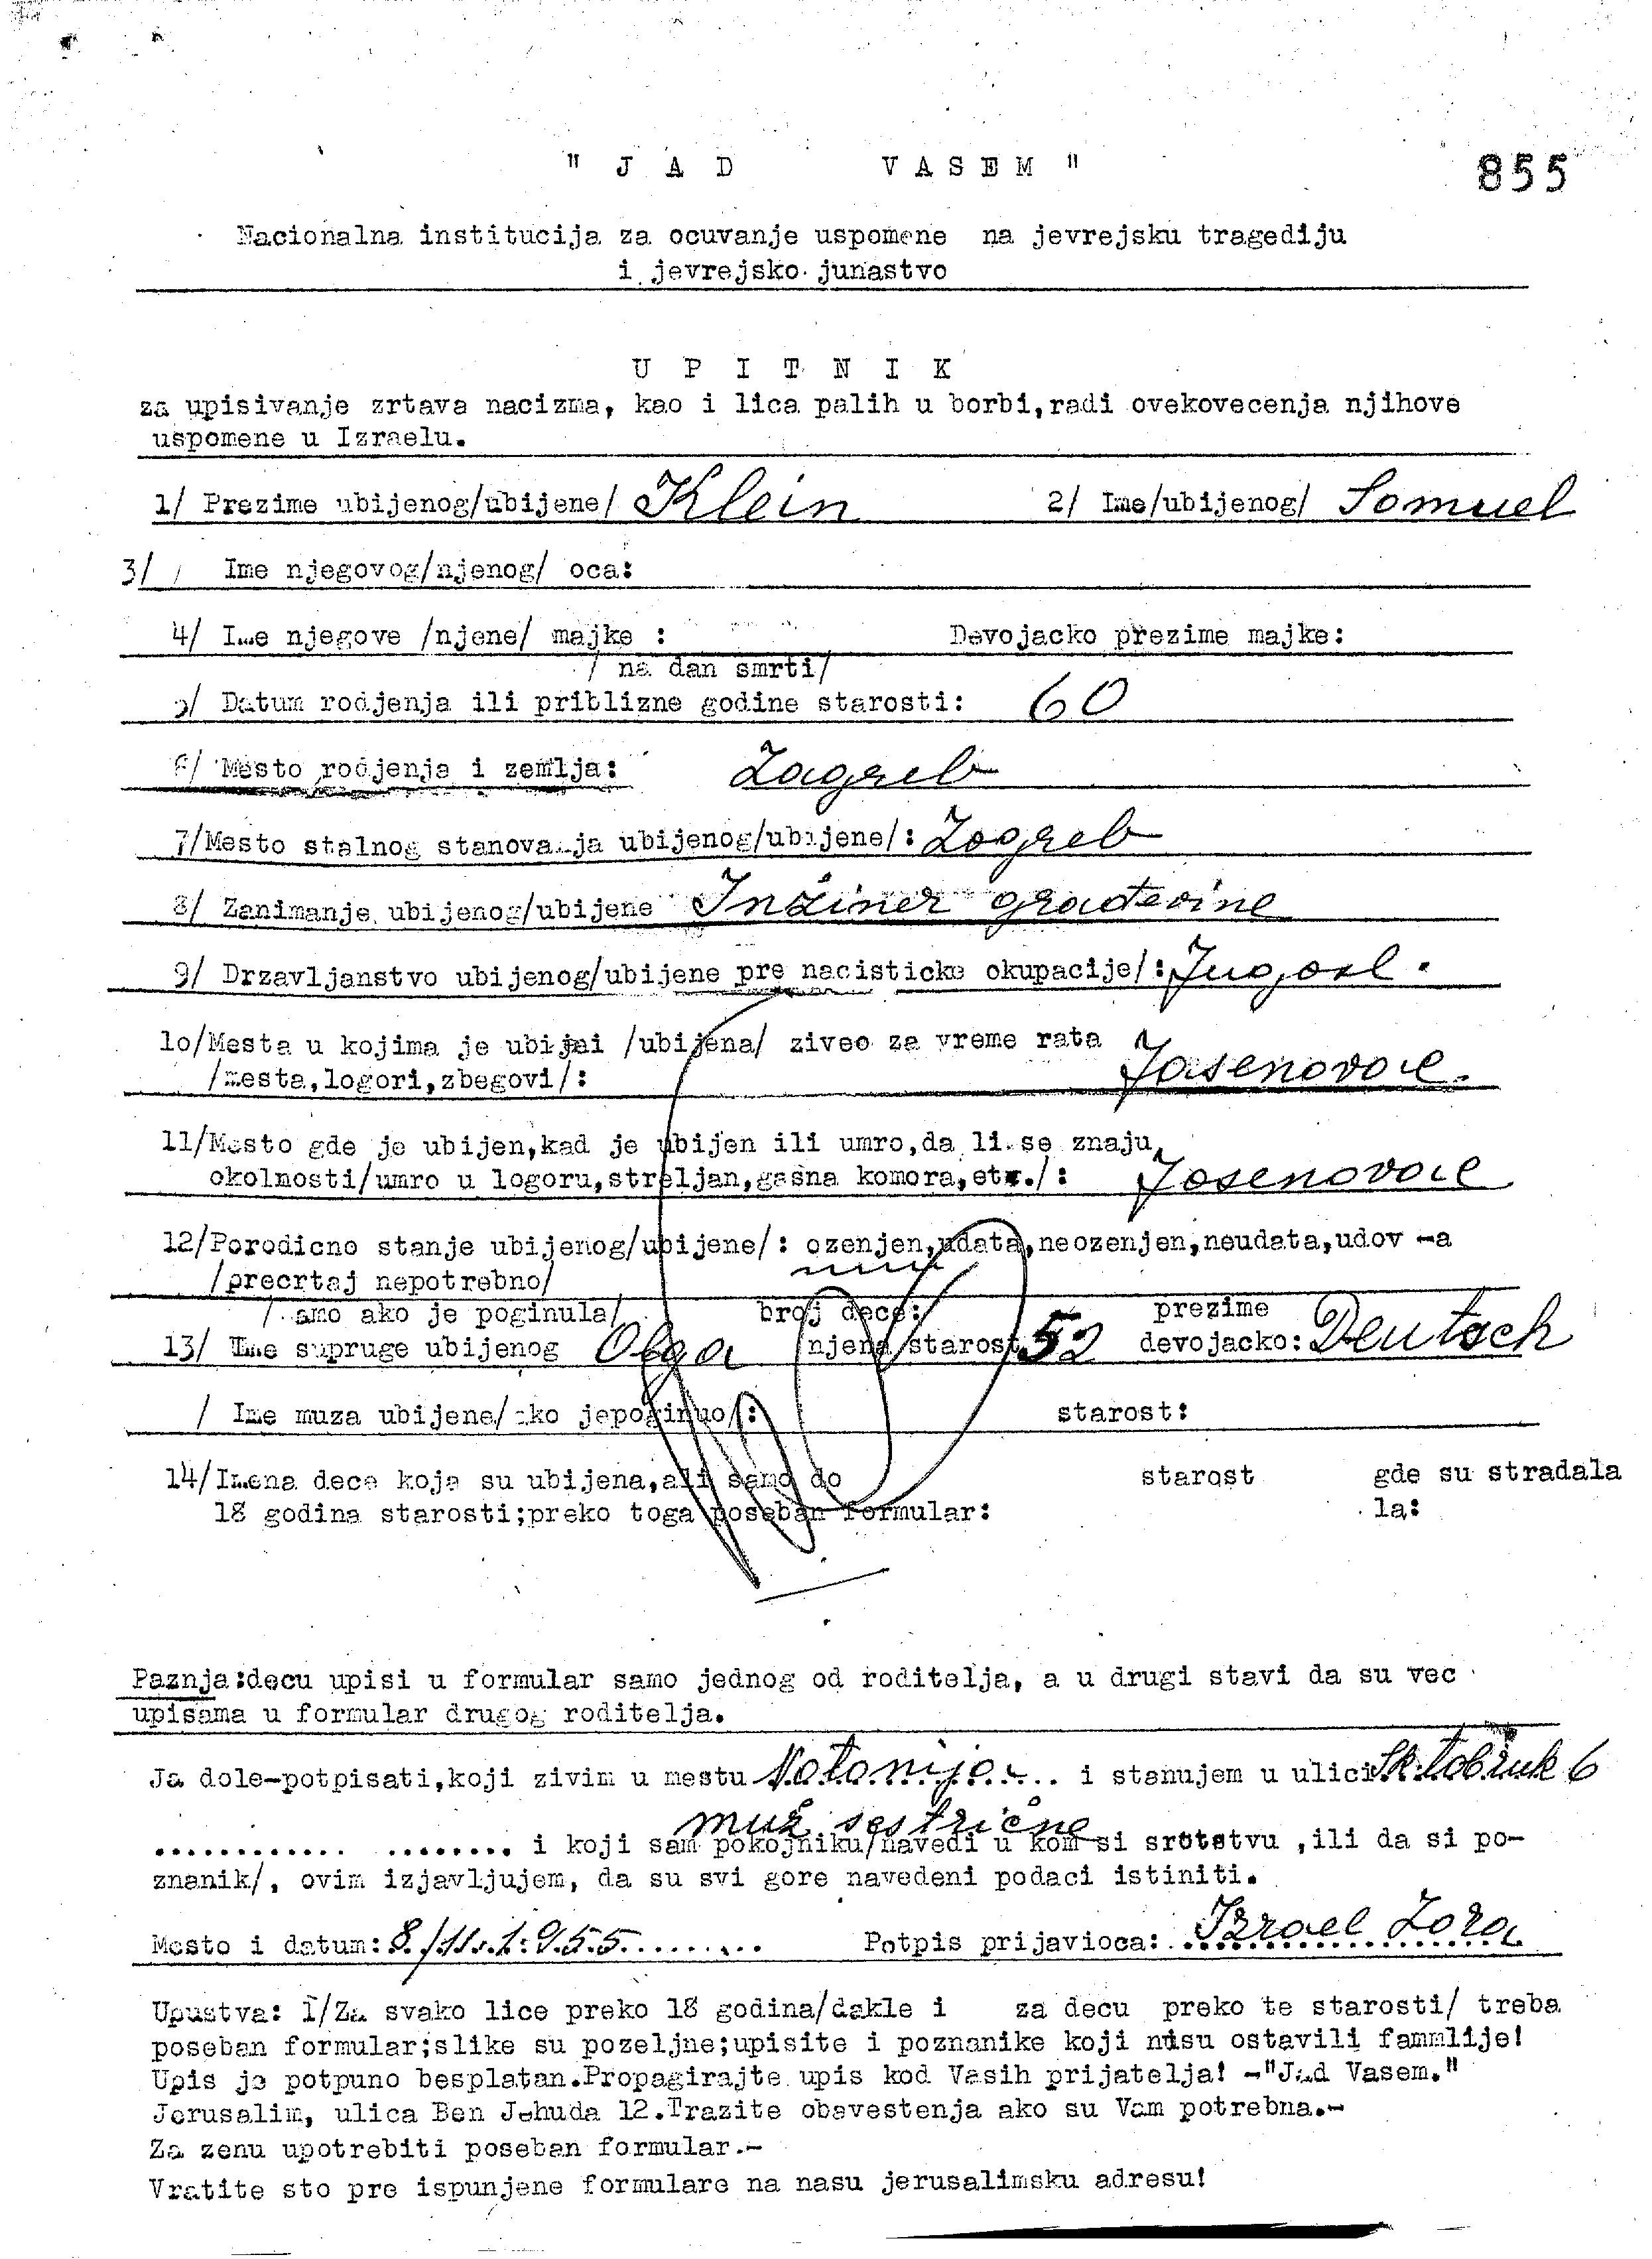 " J A D   V A S E M "
855
Nacionalna institucija za ocuvanje uspomene na jevrejsku tragediju
i jevrejsko junastvo
U P I T N I K
za upisivanje zrtava nacizma, kao i lica palih u borbi,radi ovekovecenja njihove
uspomene u Izraelu.
1/ Prezime ubijenog/ubijene/ Klein 2/ Ime/ubijenog/ Samuel
3/ / Ime njegovog/njenog/ oca:
4/ Ime njegove /njene/ majke : Devojacko prezime majke:
/ na dan smrti/
5/ Datum rodjenja ili priblizne godine starosti: 60
6/ Mesto rodjenja i zemlja: Zagreb
7/Mesto stalnog stanovanja ubijenog/ubijene/: Zagreb
8/ Zanimanje ubijenog/ubijene Inžiner građevine
9/ Drzavljanstvo ubijenog/ubijene pre nacisticke okupacije/: Jugosl.
10/Mesta u kojima je ubijni /ubijena/ ziveo za vreme rata
/mesta,logori,zbegovi/: Jasenovac.
11/Mesto gde je ubijen,kad je ubijen ili umro,da li se znaju
okolnosti/umro u logoru,streljan,gasna komora,etc./: Jasenovac
12/Porodicno stanje ubijenog/ubijene/: ozenjen,udata,neozenjen,neudata,udov -a
/precrtaj nepotrebno/
/ amo ako je poginula/ broj dece: prezime
13/ Ime supruge ubijenog Olga /njena/starost 52 devojacko: Deutsch
/ Ime muza ubijene/ako jepoginuo/: starost:
14/Imena dece koja su ubijena,ali samo do starost gde su stradala
18 godina starosti;preko toga poseban formular: la:
Paznja:decu upisi u formular samo jednog od roditelja, a u drugi stavi da su vec
upisama u formular drugog roditelja.
Ja dole-potpisati,koji zivim u mestu Natanija i stanujem u ulici Sk. Tobruk 6
muž sestrične
............ ........ i koji sam pokojniku/navedi u kom si srotstvu ,ili da si po-
znanik/, ovim izjavljujem, da su svi gore navedeni podaci istiniti.
Mesto i datum: 8./11.1.955. Potpis prijavioca: Izrael Zora
Upustva: 1/Za svako lice preko 18 godina/dakle i za decu preko te starosti/ treba
poseban formular;slike su pozeljne;upisite i poznanike koji nisu ostavili fammlije!
Upis je potpuno besplatan.Propagirajte upis kod Vasih prijatelja! -"Jad Vasem."
Jerusalim, ulica Ben Jehuda 12.Trazite obavestenja ako su Vam potrebna.-
Za zenu upotrebiti poseban formular.-
Vratite sto pre ispunjene formulare na nasu jerusalimsku adresu!